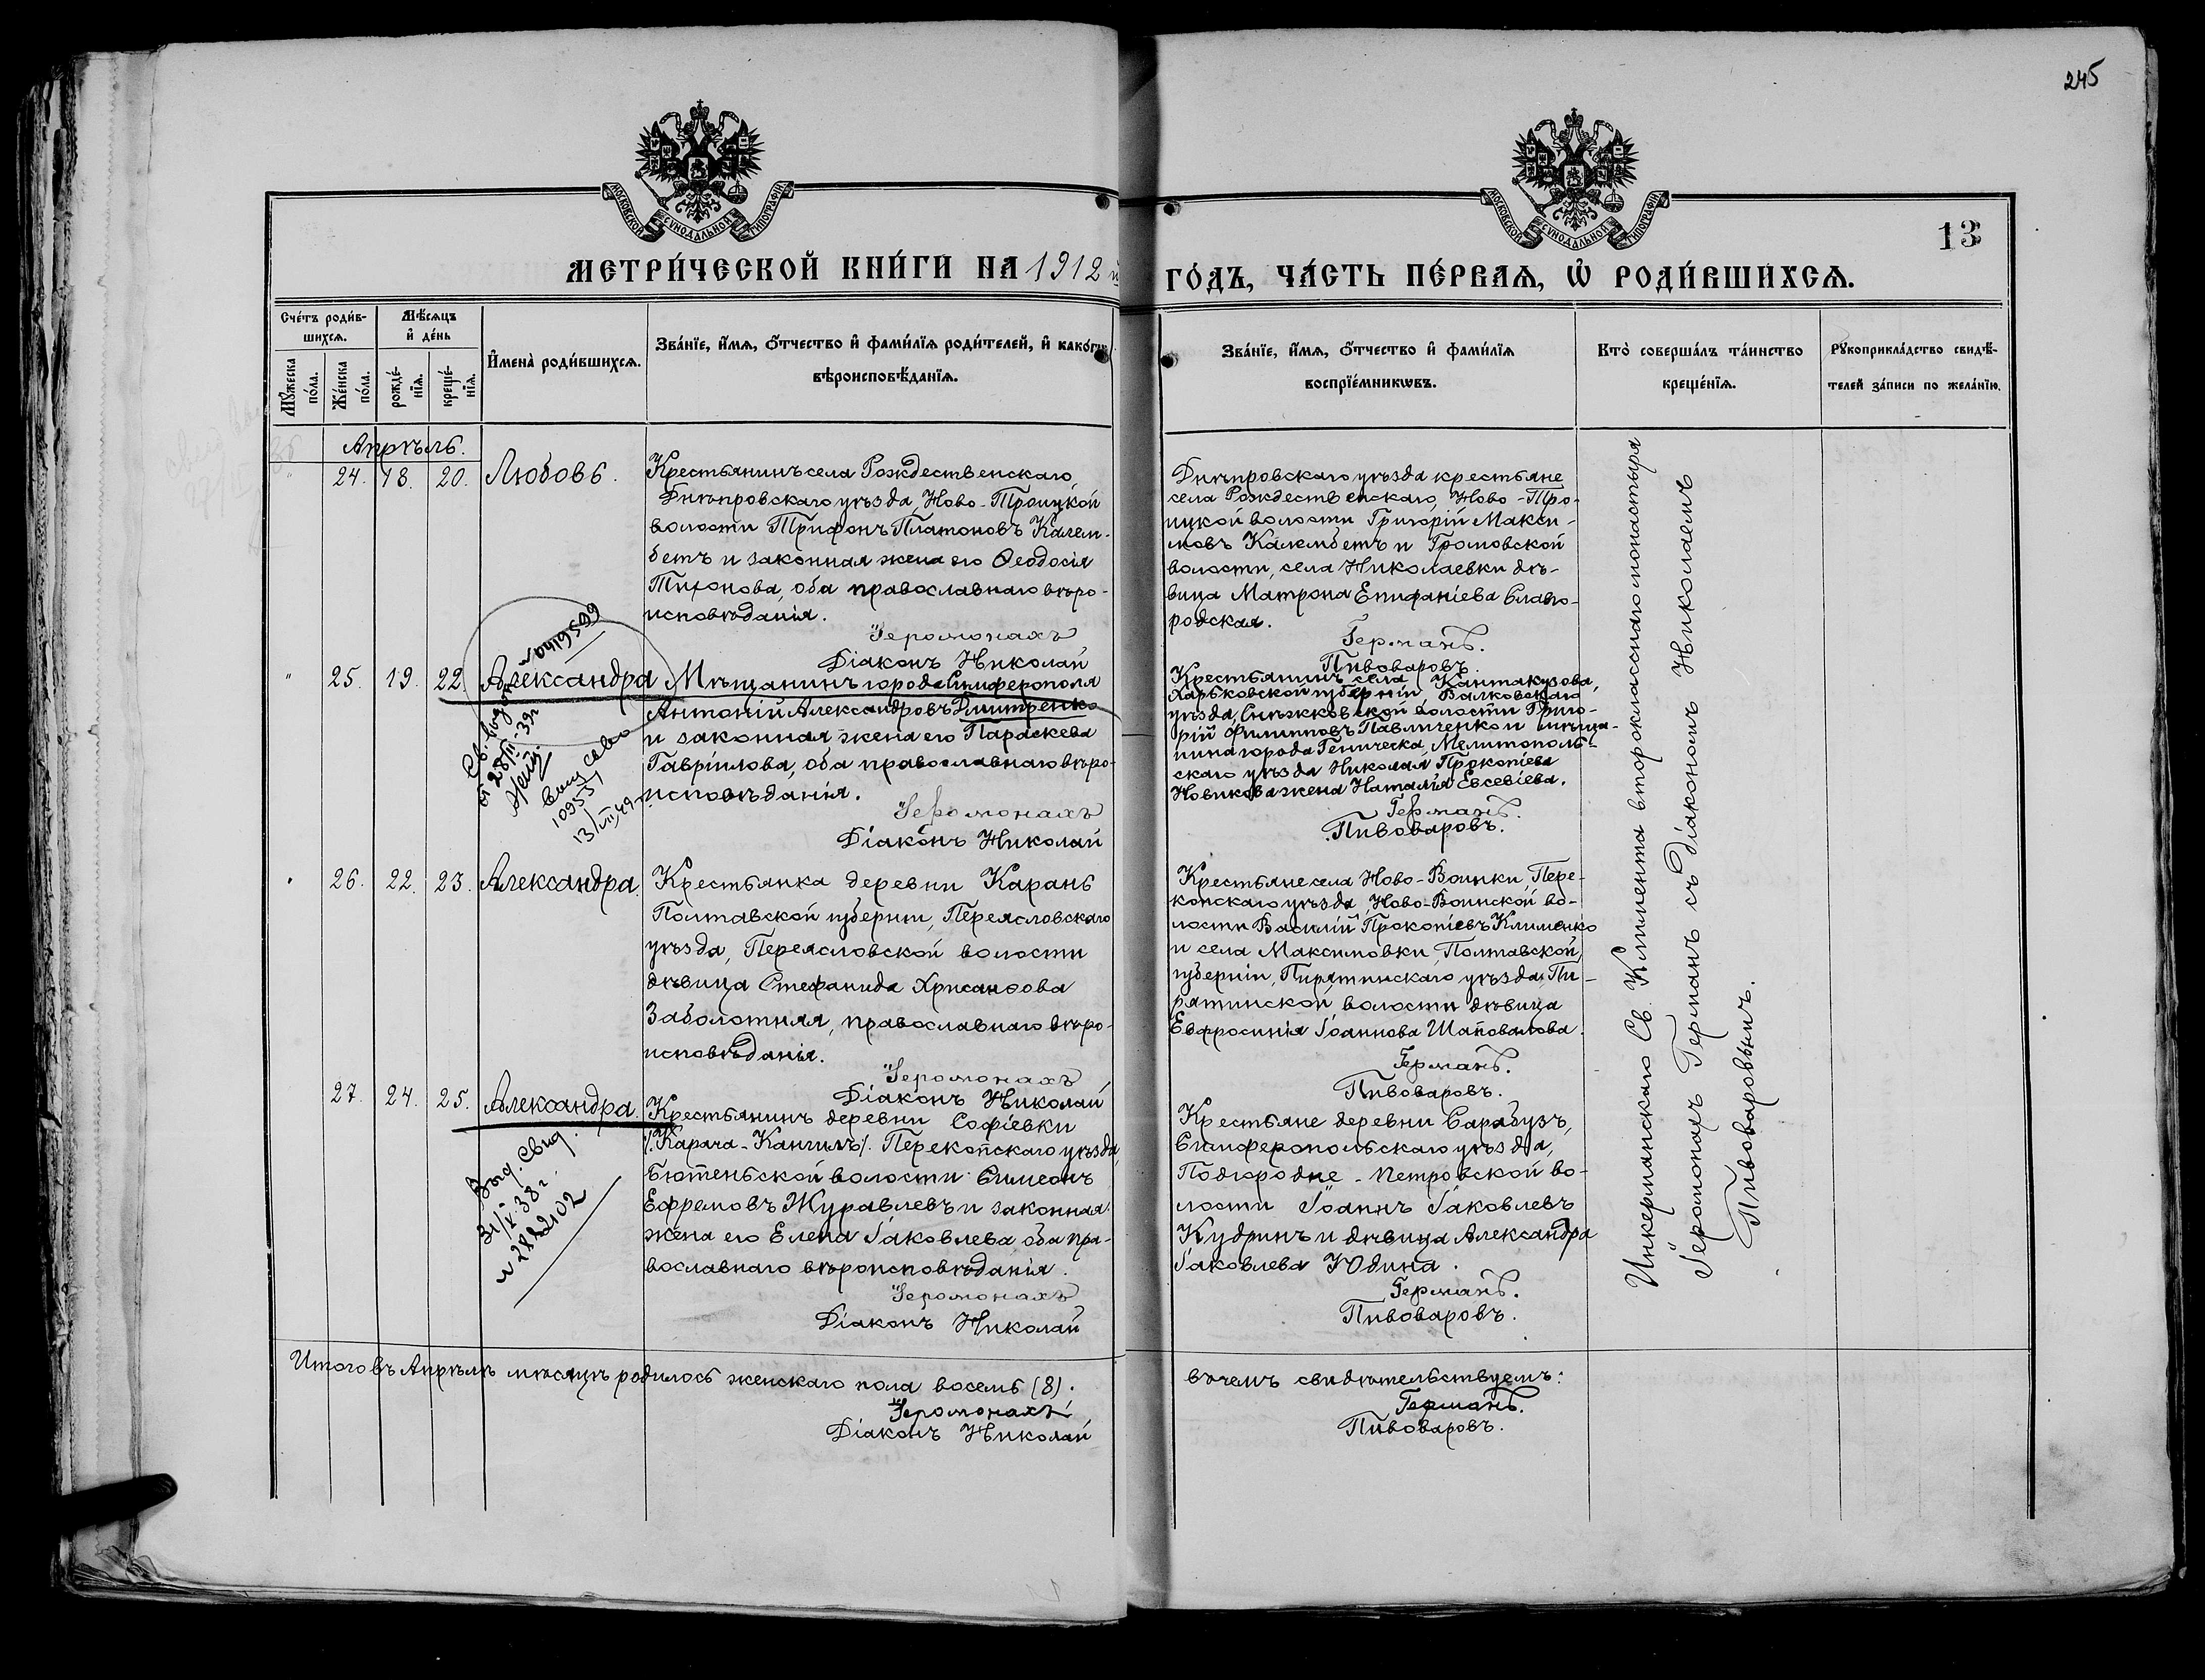 245
13
МОСКОВСКОЙ СѴНОДАЛЬНОЙ ТИПОГРАФІИ
МОСКОВСКОЙ СѴНОДАЛЬНОЙ ТИПОГРАФІИ
МЕТРИ́ЧЕСКОЙ КНИ́ГИ НА 1912 й
ГО́ДЪ, ЧА́СТЬ ПЕ́РВАѦ, Ѡ҆ РОДИ́ВШИХСѦ.
Сче́тъ роди́в-
шихсѧ.
Мѣ́сѧцъ
и҆ де́нь
Мꙋ́жеска
по́ла.
Же́нска
по́ла.
рожде́-
нїѧ.
креще́-
нїѧ.
И҆мена̀ роди́вшихсѧ.
Зва́нїе, и҆́мѧ, ѻ҆́тчество и҆ фами́лїѧ роди́телей, и҆ како́гѡ
вѣроисповѣ́данїѧ.
Зва́нїе, и҆́мѧ, ѻ҆́тчество и҆ фами́лїѧ
воспрїе́мникѡвъ.
Кто̀ соверша́лъ та́инство
креще́нїѧ.
Рꙋкоприкла́дство свидѣ́-
телей за́писи по жела́нїю.
Апрѣль.
" 24. 18. 20. Любовь.
Крестьянинъ села Рождественскаго,
Днѣпровскаго уѣзда, Ново-Троицкой
волости Трифонъ Платоновъ Калем-
бетъ и законная жена его Ѳеодосія
Тихонова, оба православнаго вѣро-
исповѣданія.
Іеромонахъ
Діаконъ Николай
Днѣпровскаго уѣзда крестьяне
села Рождественскаго, Ново-Тро-
ицкой волости Григорій Макси-
мовъ Калембетъ и Громовской
волости, села Николаевки дѣ-
вица Матрона Епифаніева Славо-
родская.
Германъ.
Пивоваровъ.
" 25. 19. 22. Александра
Мѣщанинъ города Симферополя
Антоній Александровъ Дмитренко
и законная жена его Параскева
Гавріилова, оба православнаго вѣро-
исповѣданія.
Іеромонахъ
Діаконъ Николай
Крестьянинъ села Кантакузова,
Харьковской губерніи Валковскаго
уѣзда, Снѣжковской волости Григо-
рій Филипповъ Павличенко и мѣща-
нина города Геническа, Мелитополь-
скаго уѣзда Николая Прокопіева
Новикова жена Наталія Евсевіева.
Германъ.
Пивоваровъ.
26. 22. 23. Александра.
Крестьянка деревни Карань
Полтавской губерніи, Переясловскаго
уѣзда, Переясловской волости
дѣвица Стефанида Хрисанѳова
Заболотная, православнаго вѣро-
исповѣданія.
Іеромонахъ
Діаконъ Николай
Крестьяне села Ново-Воинки, Пере-
копскаго уѣзда, Ново-Воинской во-
лости Василій Прокопіевъ Клименко
и села Максимовки, Полтавской
губерніи, Пирятинскаго уѣзда, Пи-
рятинской волости дѣвица
Евфросинія Іоаннова Шаповалова.
Германъ.
Пивоваровъ.
27. 24. 25. Александра.
Крестьянинъ деревни Софіевки
/.Карача-Кангилъ/. Перекопскаго уѣзда,
Бютеньской волости Симеонъ
Ефремовъ Журавлевъ и законная
жена его Елена Іаковлева, оба пра-
вославнаго вѣроисповѣданія.
Іеромонахъ
Діаконъ Николай
Крестьяне деревни Сарабузъ,
Симферопольскаго уѣзда,
Подгородне-Петровской во-
лости Іоаннъ Іаковлевъ
Кудринъ и дѣвица Александра
Іаковлева Юдина.
Германъ.
Пивоваровъ.
Инкерманскаго Св. Климента второкласснаго монастыря
Іеромонахъ Германъ съ діакономъ Николаемъ
Пивоваровымъ.
№ 0419599
от 28/II-39г
10955
13/VII,49 г.
Выд. Свид.
31/V 38 г.
№ 2882102
Итого въ Апрѣлѣ мѣсяцѣ родилось женскаго пола восемь (8).
въ чемъ свидѣтельствуемъ:
Іеромонахъ
Германъ.
Діаконъ Николай
Пивоваровъ.